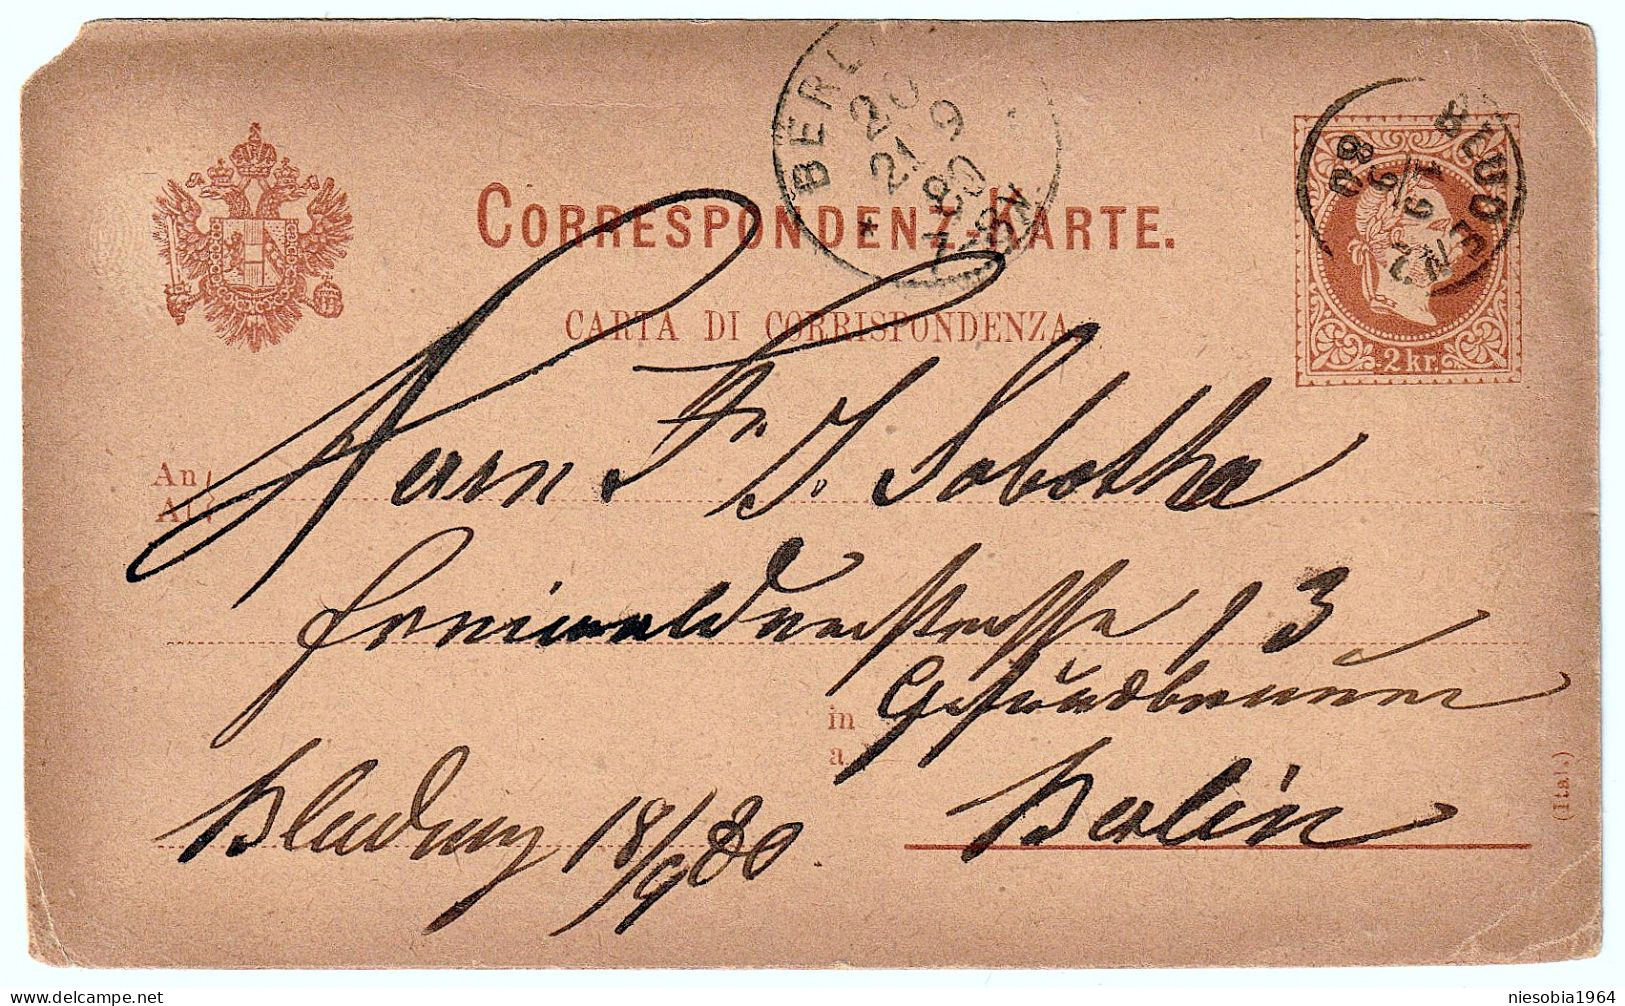 BERLIN
20
21 9
80
BLUDENZ
19
9
80
CORRESPONDENZ-KARTE.
CARTA DI CORRISPONDENZA
2 kr.
An
A
Herrn Fr. J. Sobotka
Freienwalderstrasse 13
in
Gesundbrunnen
a
Berlin
Bludenz 18/9 80
(Ital.)
niesobia1964
delcampe.net